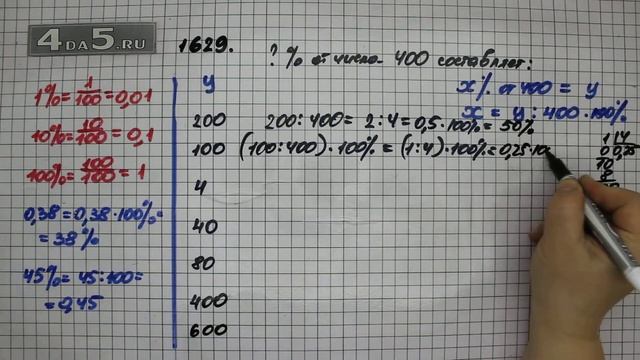 4DA5.RU
1629. ? % от числа 400 составляет:
x% от 400 = y
x = y : 400 · 100%
1% = 1/100 = 0,01
10% = 10/100 = 0,1
100% = 100/100 = 1
0,38 = 0,38 · 100% =
= 38%
45% = 45 : 100 =
= 0,45
y
200 200 : 400 = 2 : 4 = 0,5 · 100% = 50%
100 (100 : 400) · 100% = (1 : 4) · 100% = 0,25 · 10
4
40
80
400
600
1 4
0 0,25
10
8